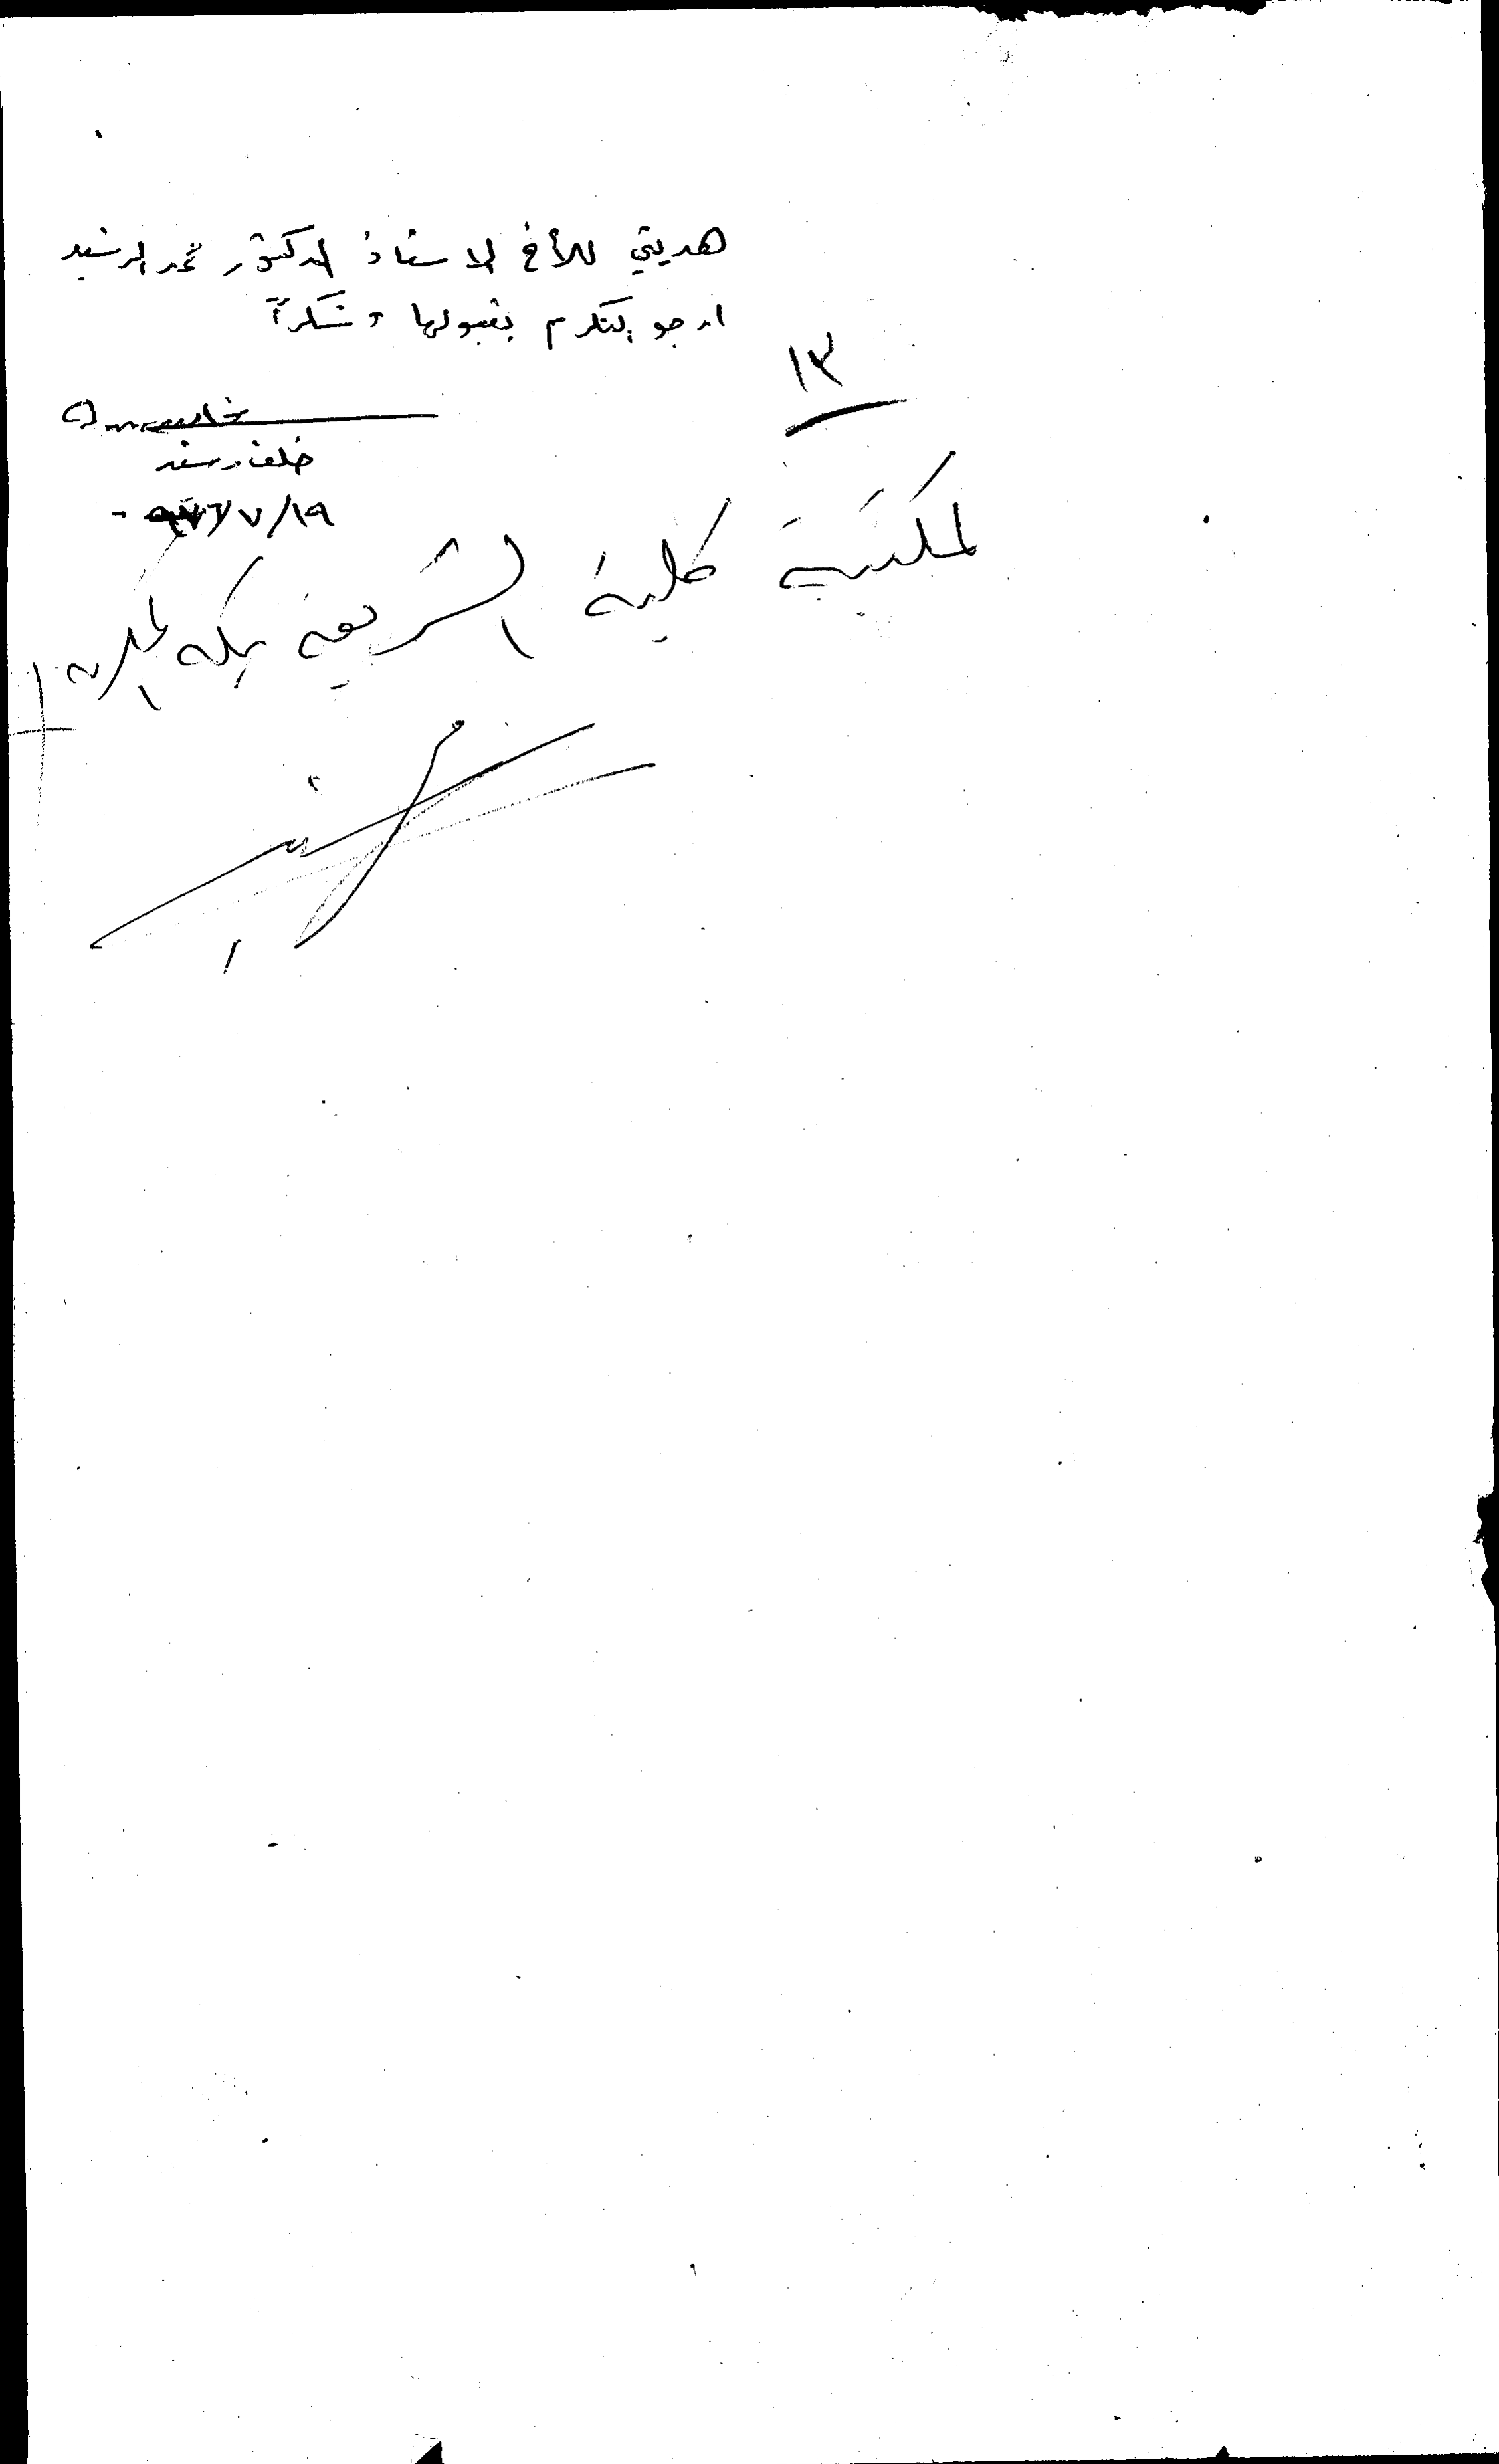 هديتي للأخ الاستاذ الدكتور محمد الرشيد
ارجو التكرم بقبولها وشكراً
١٣
خلف رشيد
١٩/٧/
لمكتبة كلية الشريعة بمكة المكرمة